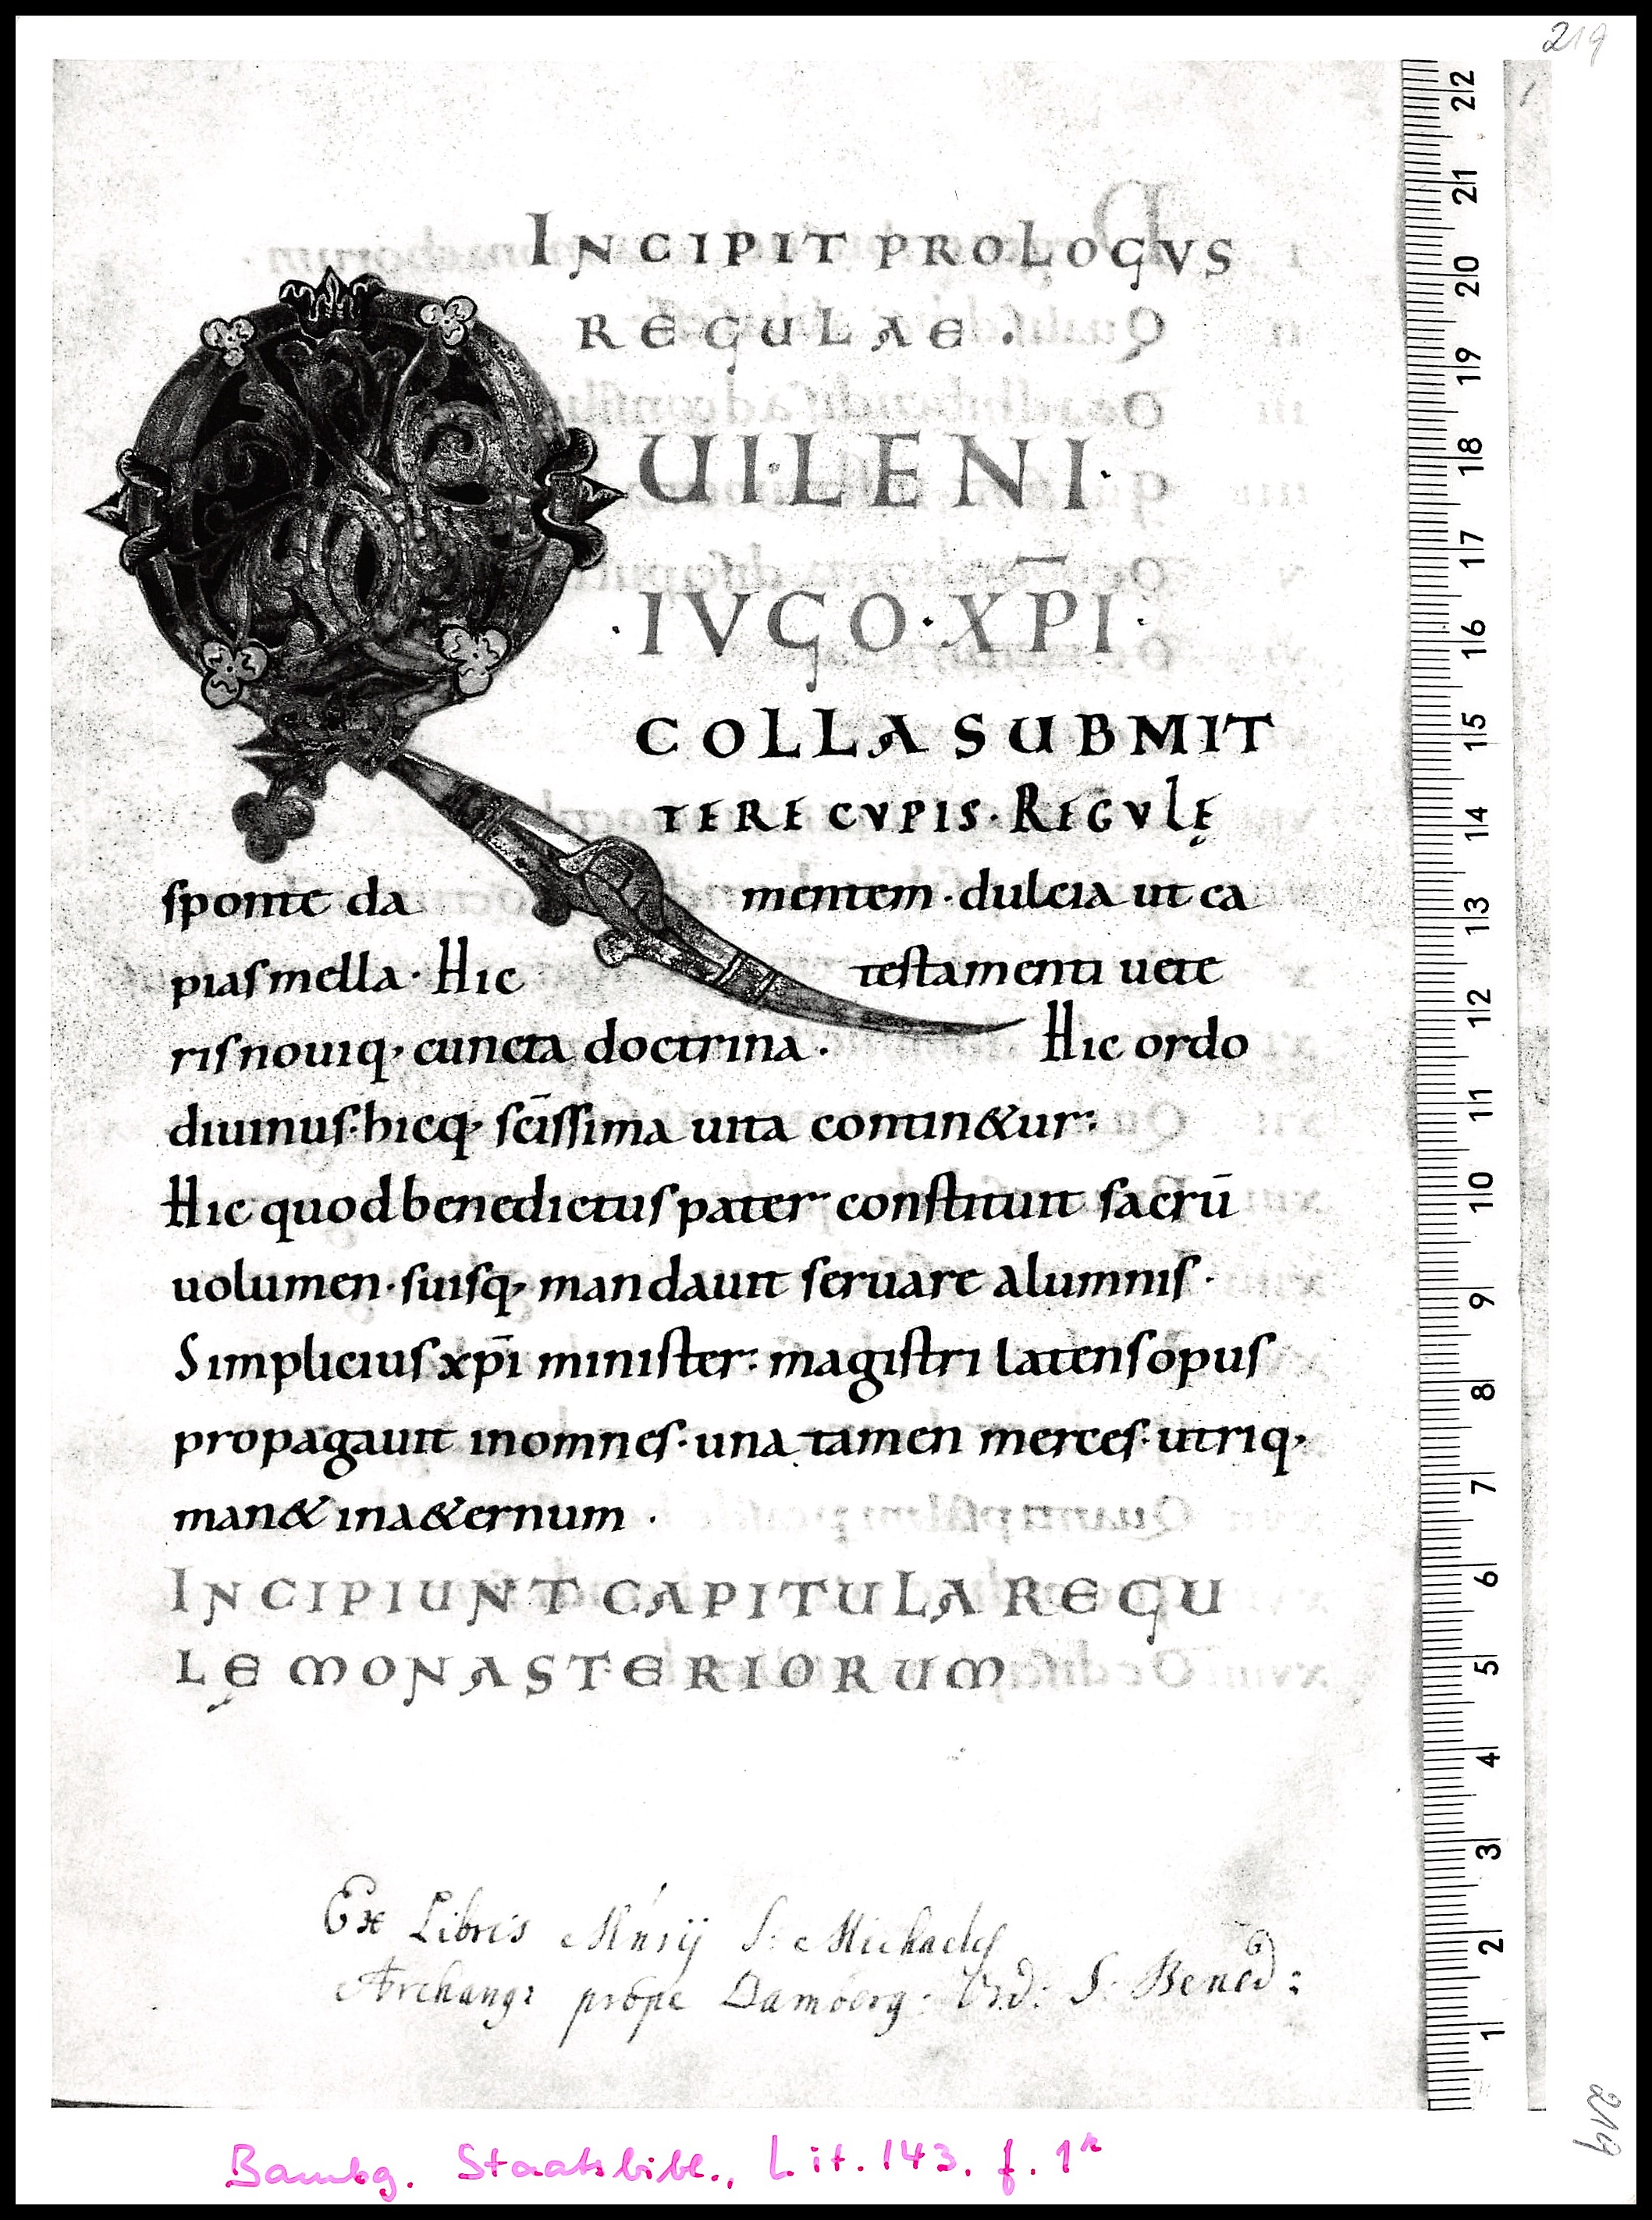 219
INCIPIT PROLOGVS
REGULAE .
QUI·LENI·
·IVGO·XP̄I·
COLLA SUBMIT
TERE CVPIS·REGVLĘ
sponte da mentem·dulcia ut ca
pias mella· Hic testamenti uete
ris nouiq; cuncta doctrina· Hic ordo
diuinus·hicq; sc̄issima uita contin&ur:
Hic quod benedictus pater constituit sacrū
uolumen·suisq; mandauit seruare alumnis·
Simplicius xp̄i minister: magistri latens opus
propagauit in omnes·una tamen merces·utriq;
man& in a&ernum .
INCIPIUNT CAPITULA REGU
LĘ MONASTERIORUM
Ex Libris Mńrij S: Michaelis
Archang: prope Bamberg: Ord: S: Bened:
Bambg. Staatsbibl., Lit. 143. f. 1r
22
21
20
19
18
17
16
15
14
13
12
11
10
9
8
7
6
5
4
3
2
1
219